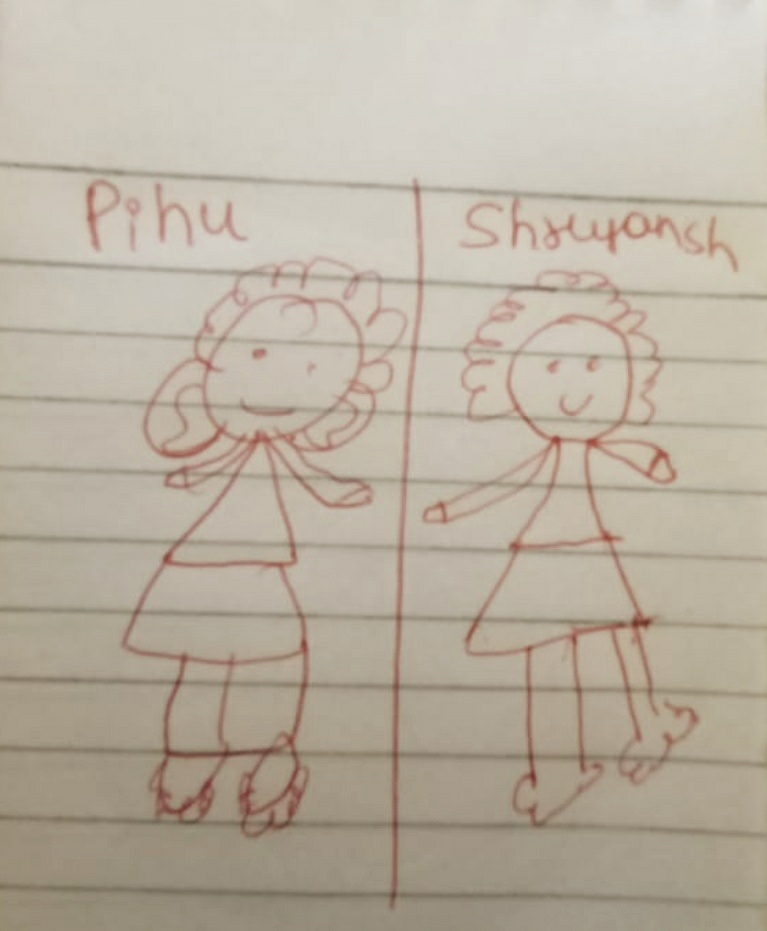 Pihu
Shreyansh